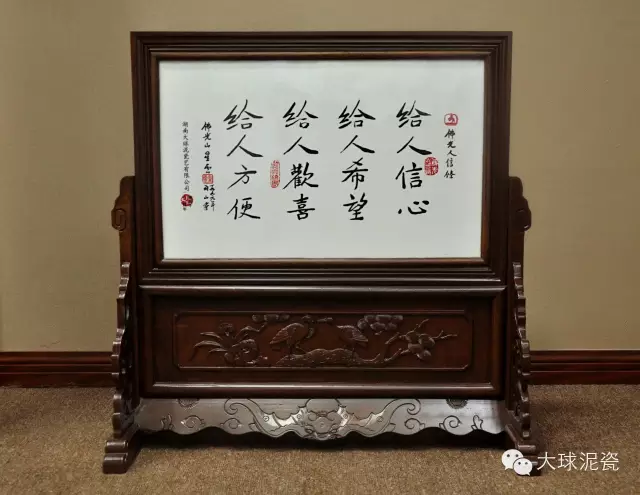 佛光人信條
给人信心
给人希望
给人歡喜
给人方便
佛光山星雲
湖南大球泥瓷艺有限公司
大球泥瓷